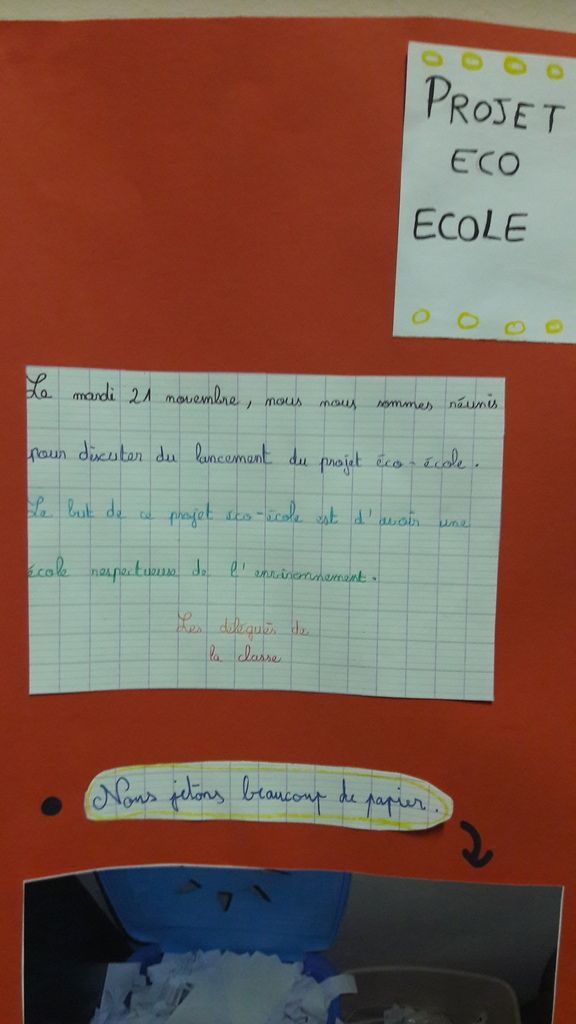 PROJET
ECO
ECOLE
Le mardi 21 novembre, nous nous sommes réunis
pour discuter du lancement du projet éco-école.
Le but de ce projet éco-école est d'avoir une
école respectueuse de l'environnement.
Les délégués de
la classe
Nous jetons beaucoup de papier.